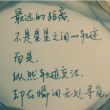 最远的距离，
不是星星之间的轨迹，
而是，
纵然轨迹交汇，
却在瞬间无处寻觅。